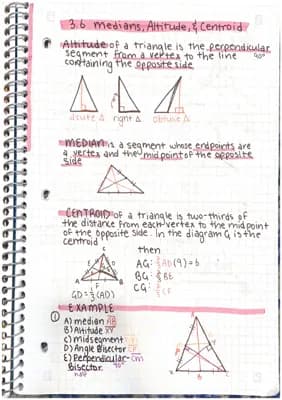 3.6 medians, Altitude, & Centroid
Altitude of a triangle is the perpendicular
90°
segment from a vertex to the line
containing the opposite side
acute △ right △ obtuse △
MEDIAN is a segment whose endpoints are
a vertex and the midpoint of the opposite
side
CENTROID of a triangle is two-thirds of
the distance from each vertex to the midpoint
of the opposite side. In the diagram G is the
centroid
then
AG: 2/3 AD (9) = 6
BG: 2/3 BE
CG: 2/3 CF
GD = 1/3 (AD)
EXAMPLE
① A) median
B) Altitude XY
C) midsegment
D) Angle Bisector
E) Perpendicular-
Bisector 90°